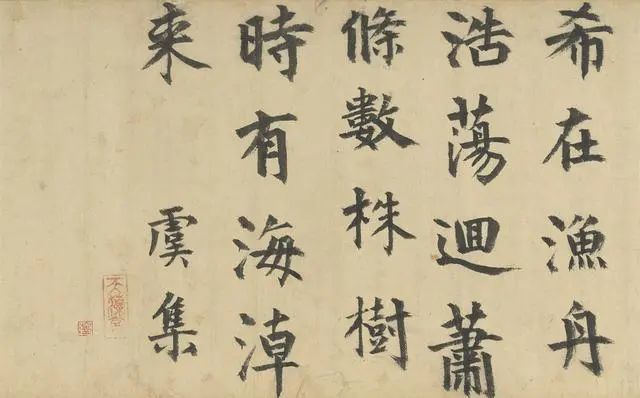 希在漁舟
浩蕩迴蕭
條數株樹
時有海淖
来 虞集